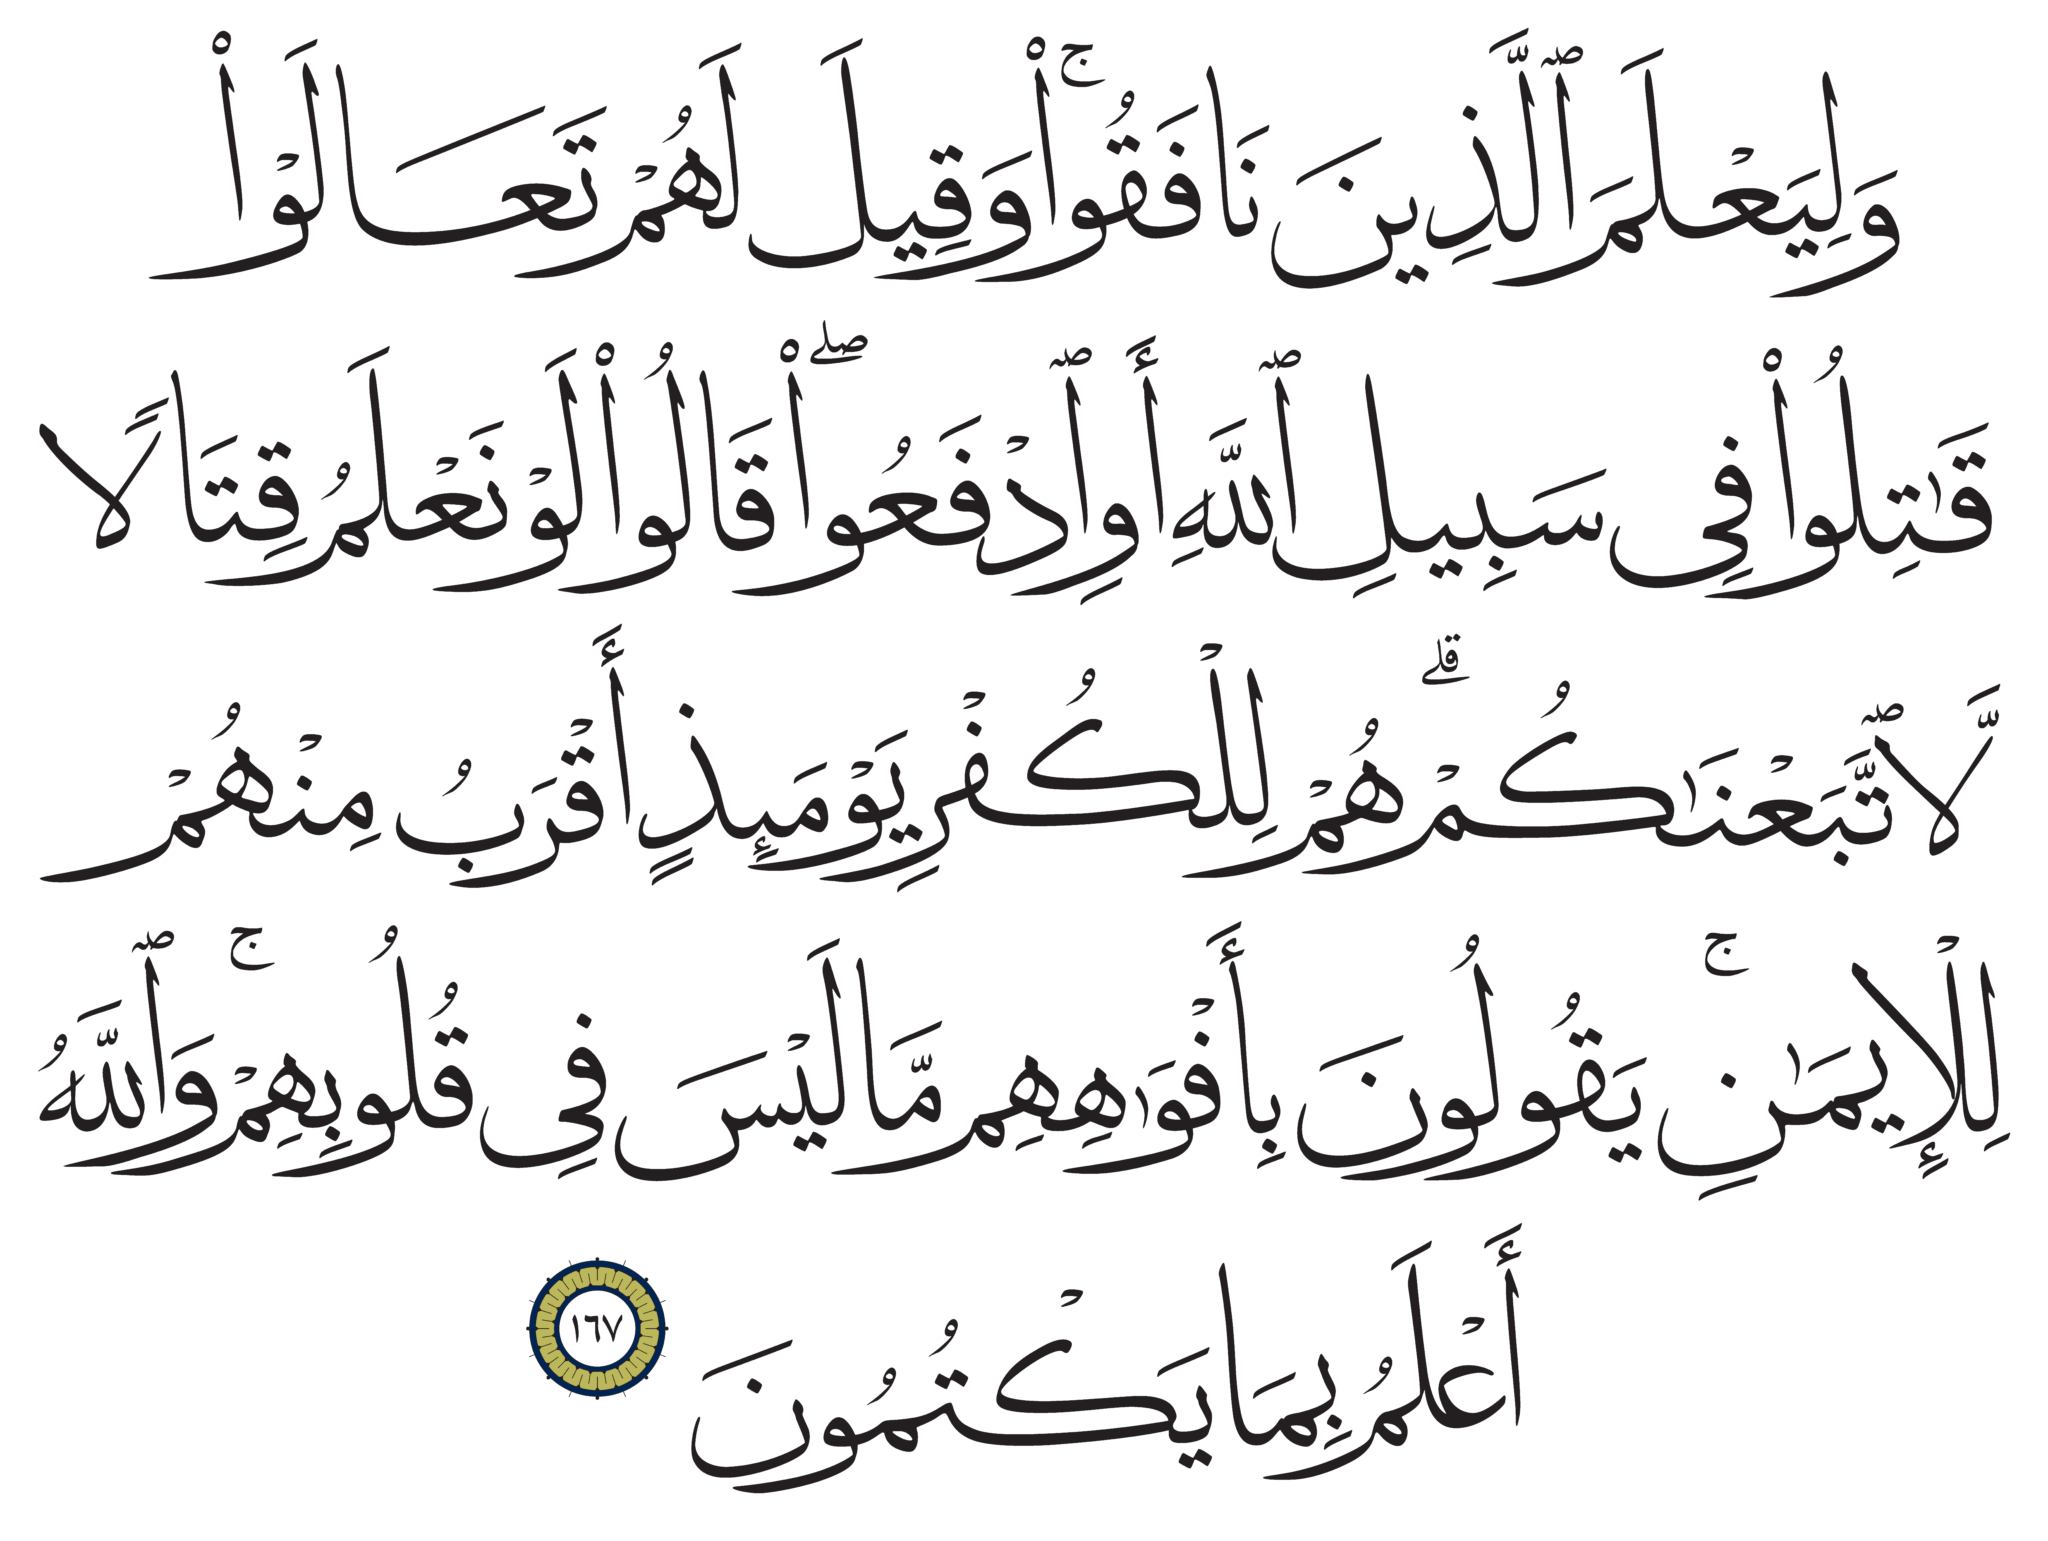 وَلِيَعْلَمَ ٱلَّذِينَ نَافَقُوا۟ ۚ وَقِيلَ لَهُمْ تَعَالَوْا۟
قَـٰتِلُوا۟ فِى سَبِيلِ ٱللَّهِ أَوِ ٱدْفَعُوا۟ ۖ قَالُوا۟ لَوْ نَعْلَمُ قِتَالًا
لَّٱتَّبَعْنَـٰكُمْ ۗ هُمْ لِلْكُفْرِ يَوْمَئِذٍ أَقْرَبُ مِنْهُمْ
لِلْإِيمَـٰنِ ۚ يَقُولُونَ بِأَفْوَٰهِهِم مَّا لَيْسَ فِى قُلُوبِهِمْ ۚ وَٱللَّهُ
أَعْلَمُ بِمَا يَكْتُمُونَ ١٦٧